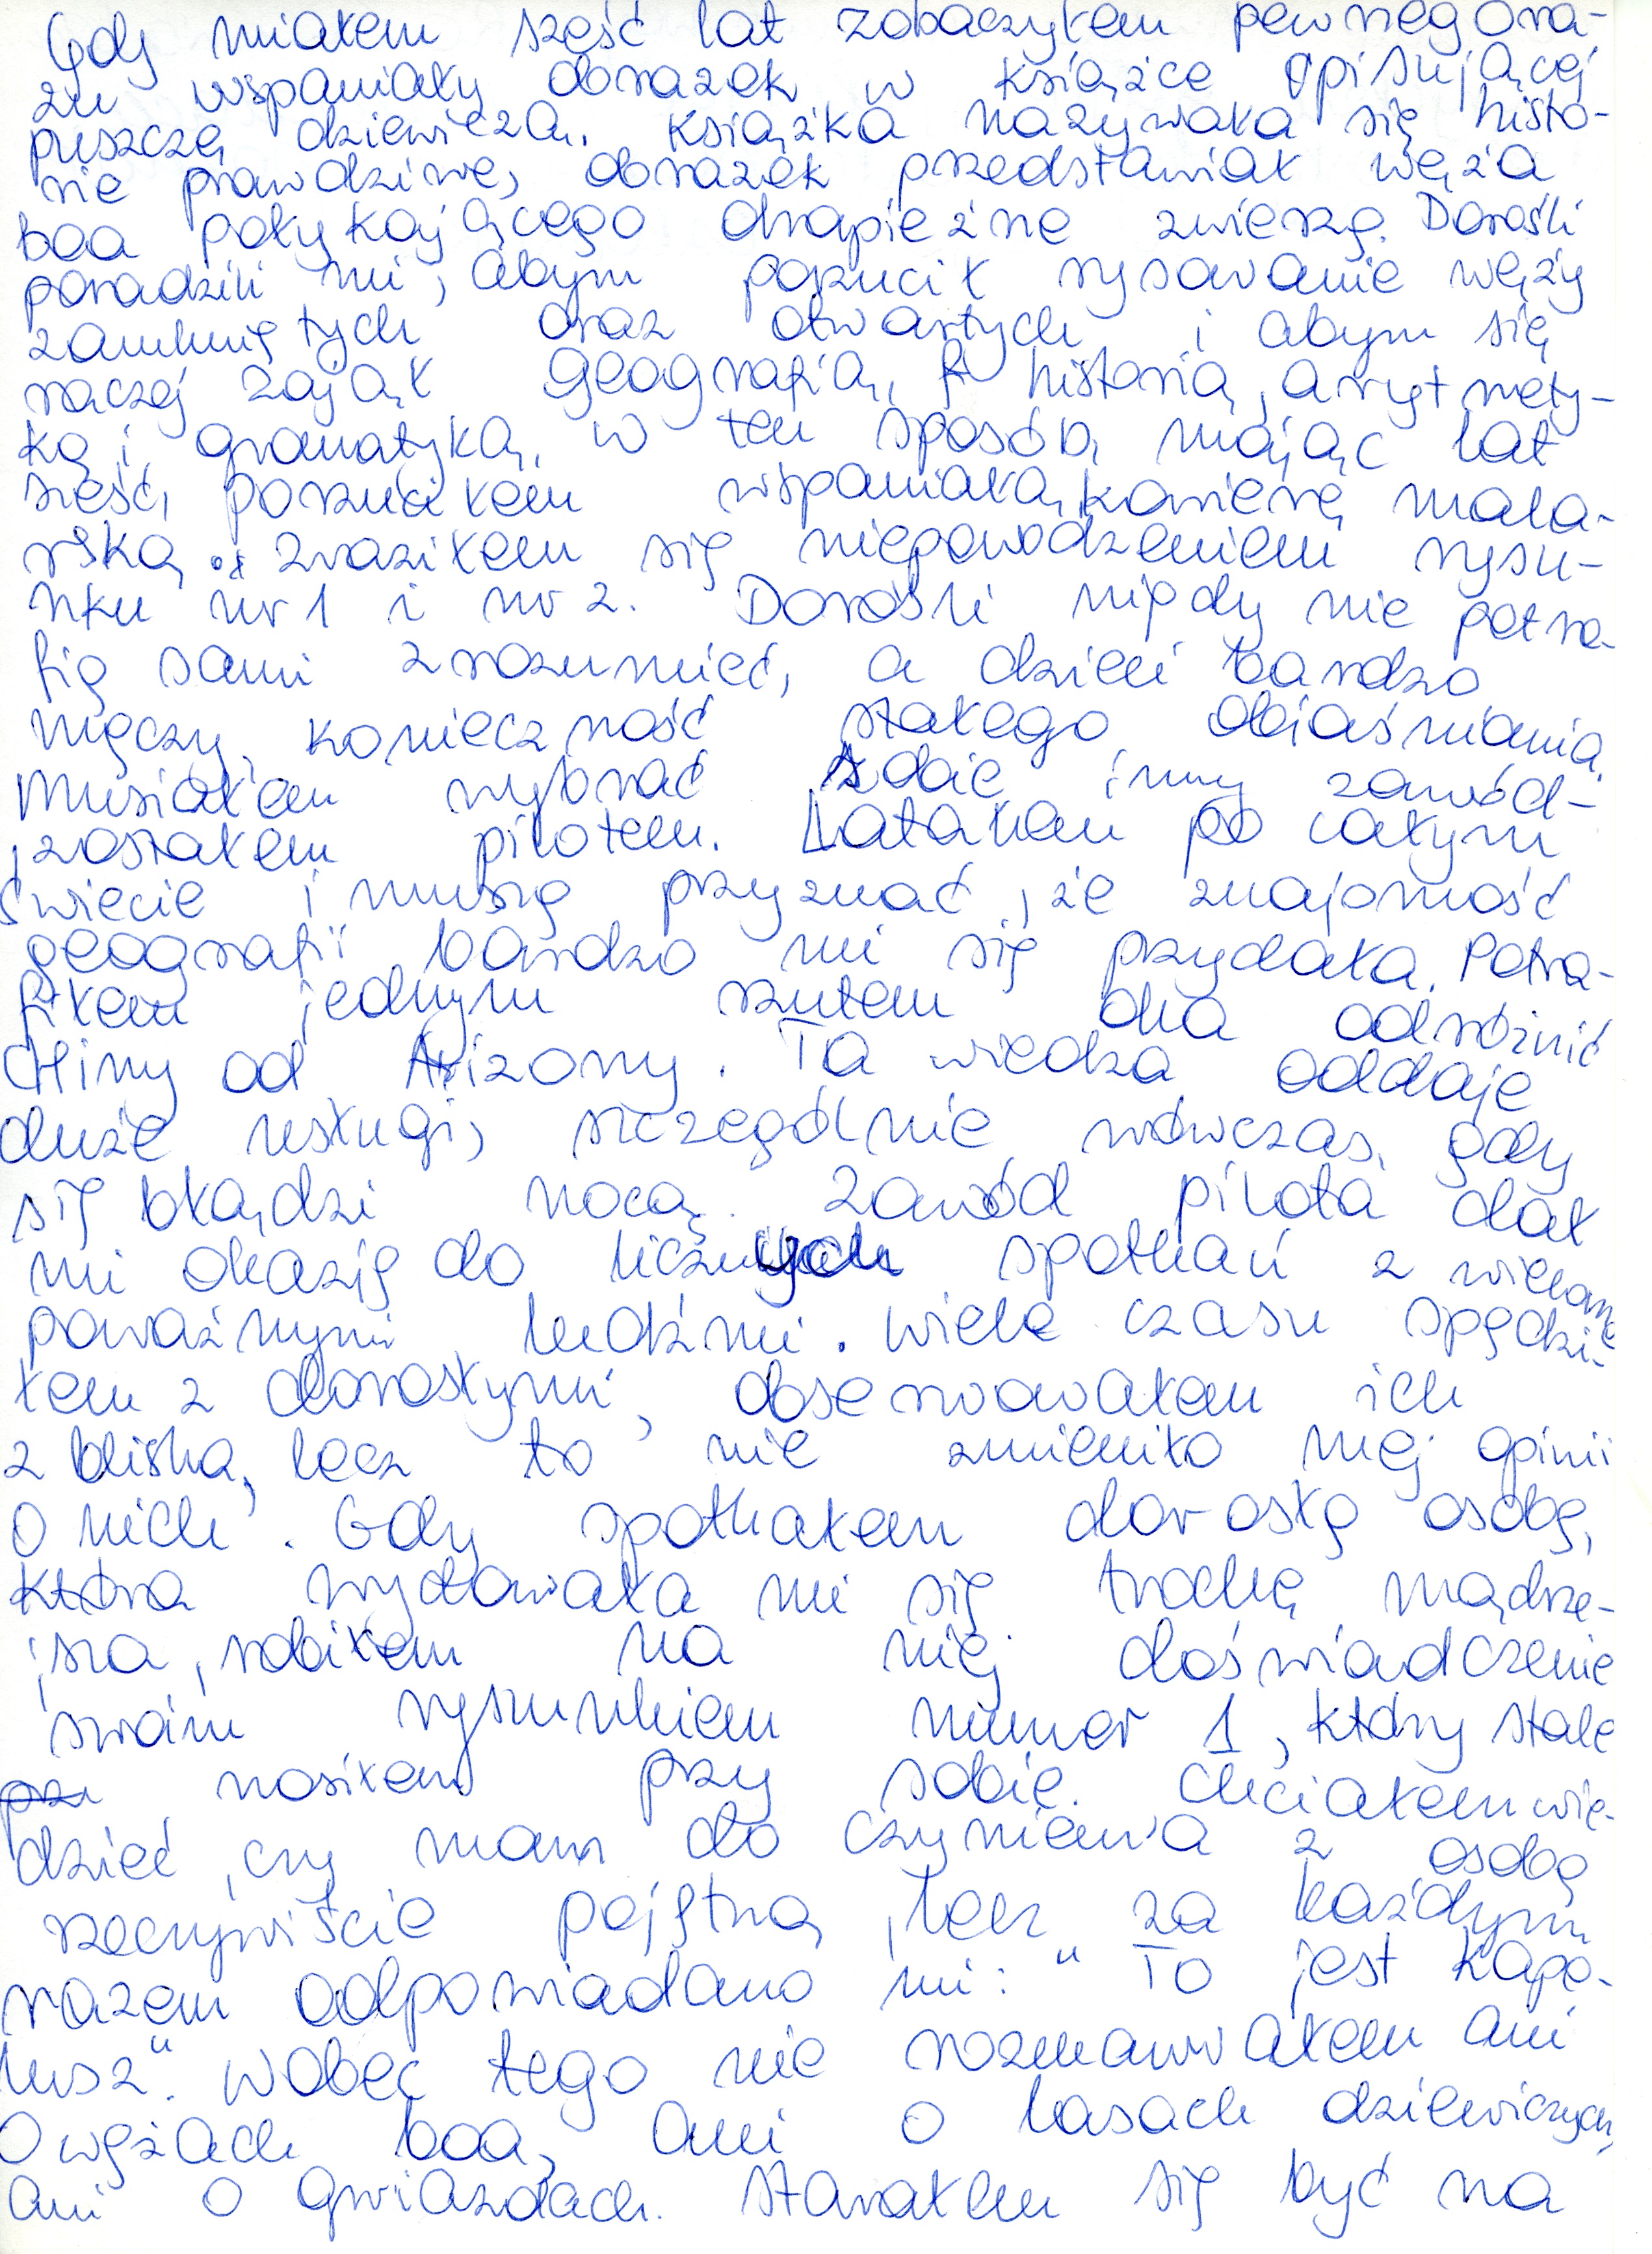 Gdy miałem sześć lat zobaczyłem pewnego ra-
zu wspaniały obrazek w książce opisującej
puszczę dziewiczą. Książka nazywała się histo-
rie prawdziwe, obrazek przedstawiał węża
boa połykającego drapieżne zwierzę. Dorośli
poradzili mi, abym porzucił rysowanie węży
zamkniętych oraz otwartych i abym się
raczej zajął geografią, historią, arytmety-
ką i gramatyką. w ten sposób, mając lat
sześć, porzuciłem wspaniałą karierę mala-
rską. Zraziłem się niepowodzeniem rysu-
nku nr 1 i nr 2. Dorośli nigdy nie potra-
fią sami zrozumieć, a dzieci bardzo
męczy konieczność stałego objaśniania.
Musiałem wybrać sobie inny zawód-
zostałem pilotem. Latałem po całym
świecie i muszę przyznać, że znajomość
geografii bardzo mi się przydała. Potra-
fiłem jednym rzutem oka odróżnić
CHiny od Arizony. Ta wiedza oddaje
duże usługi, szczególnie wówczas, gdy
się błądzi nocą. Zawód pilota dał
mi okazję do licznych spotkań z wieloma
poważnymi ludźmi. Wiele czasu spędzi-
łem z dorosłymi, obserwowałem ich
z bliska, lecz to nie zmieniło mej opinii
o nich. Gdy spotkałem dorosłą osobę,
która wydawała mi się trochę mądrze-
jsza, robiłem na niej doświadczenie
swoim rysunkiem numer 1, który stale
prz nosiłem przy sobie. Chciałem wie-
dzieć, czy mam do czynienia z osobą
rzeczywiście pojętną, lecz za każdym
razem odpowiadano mi: "To jest kape-
lusz". Wobec tego nie rozmawiałem ani
o wężach boa, ani o lasach dziewiczych,
ani o gwiazdach. starałem się być na